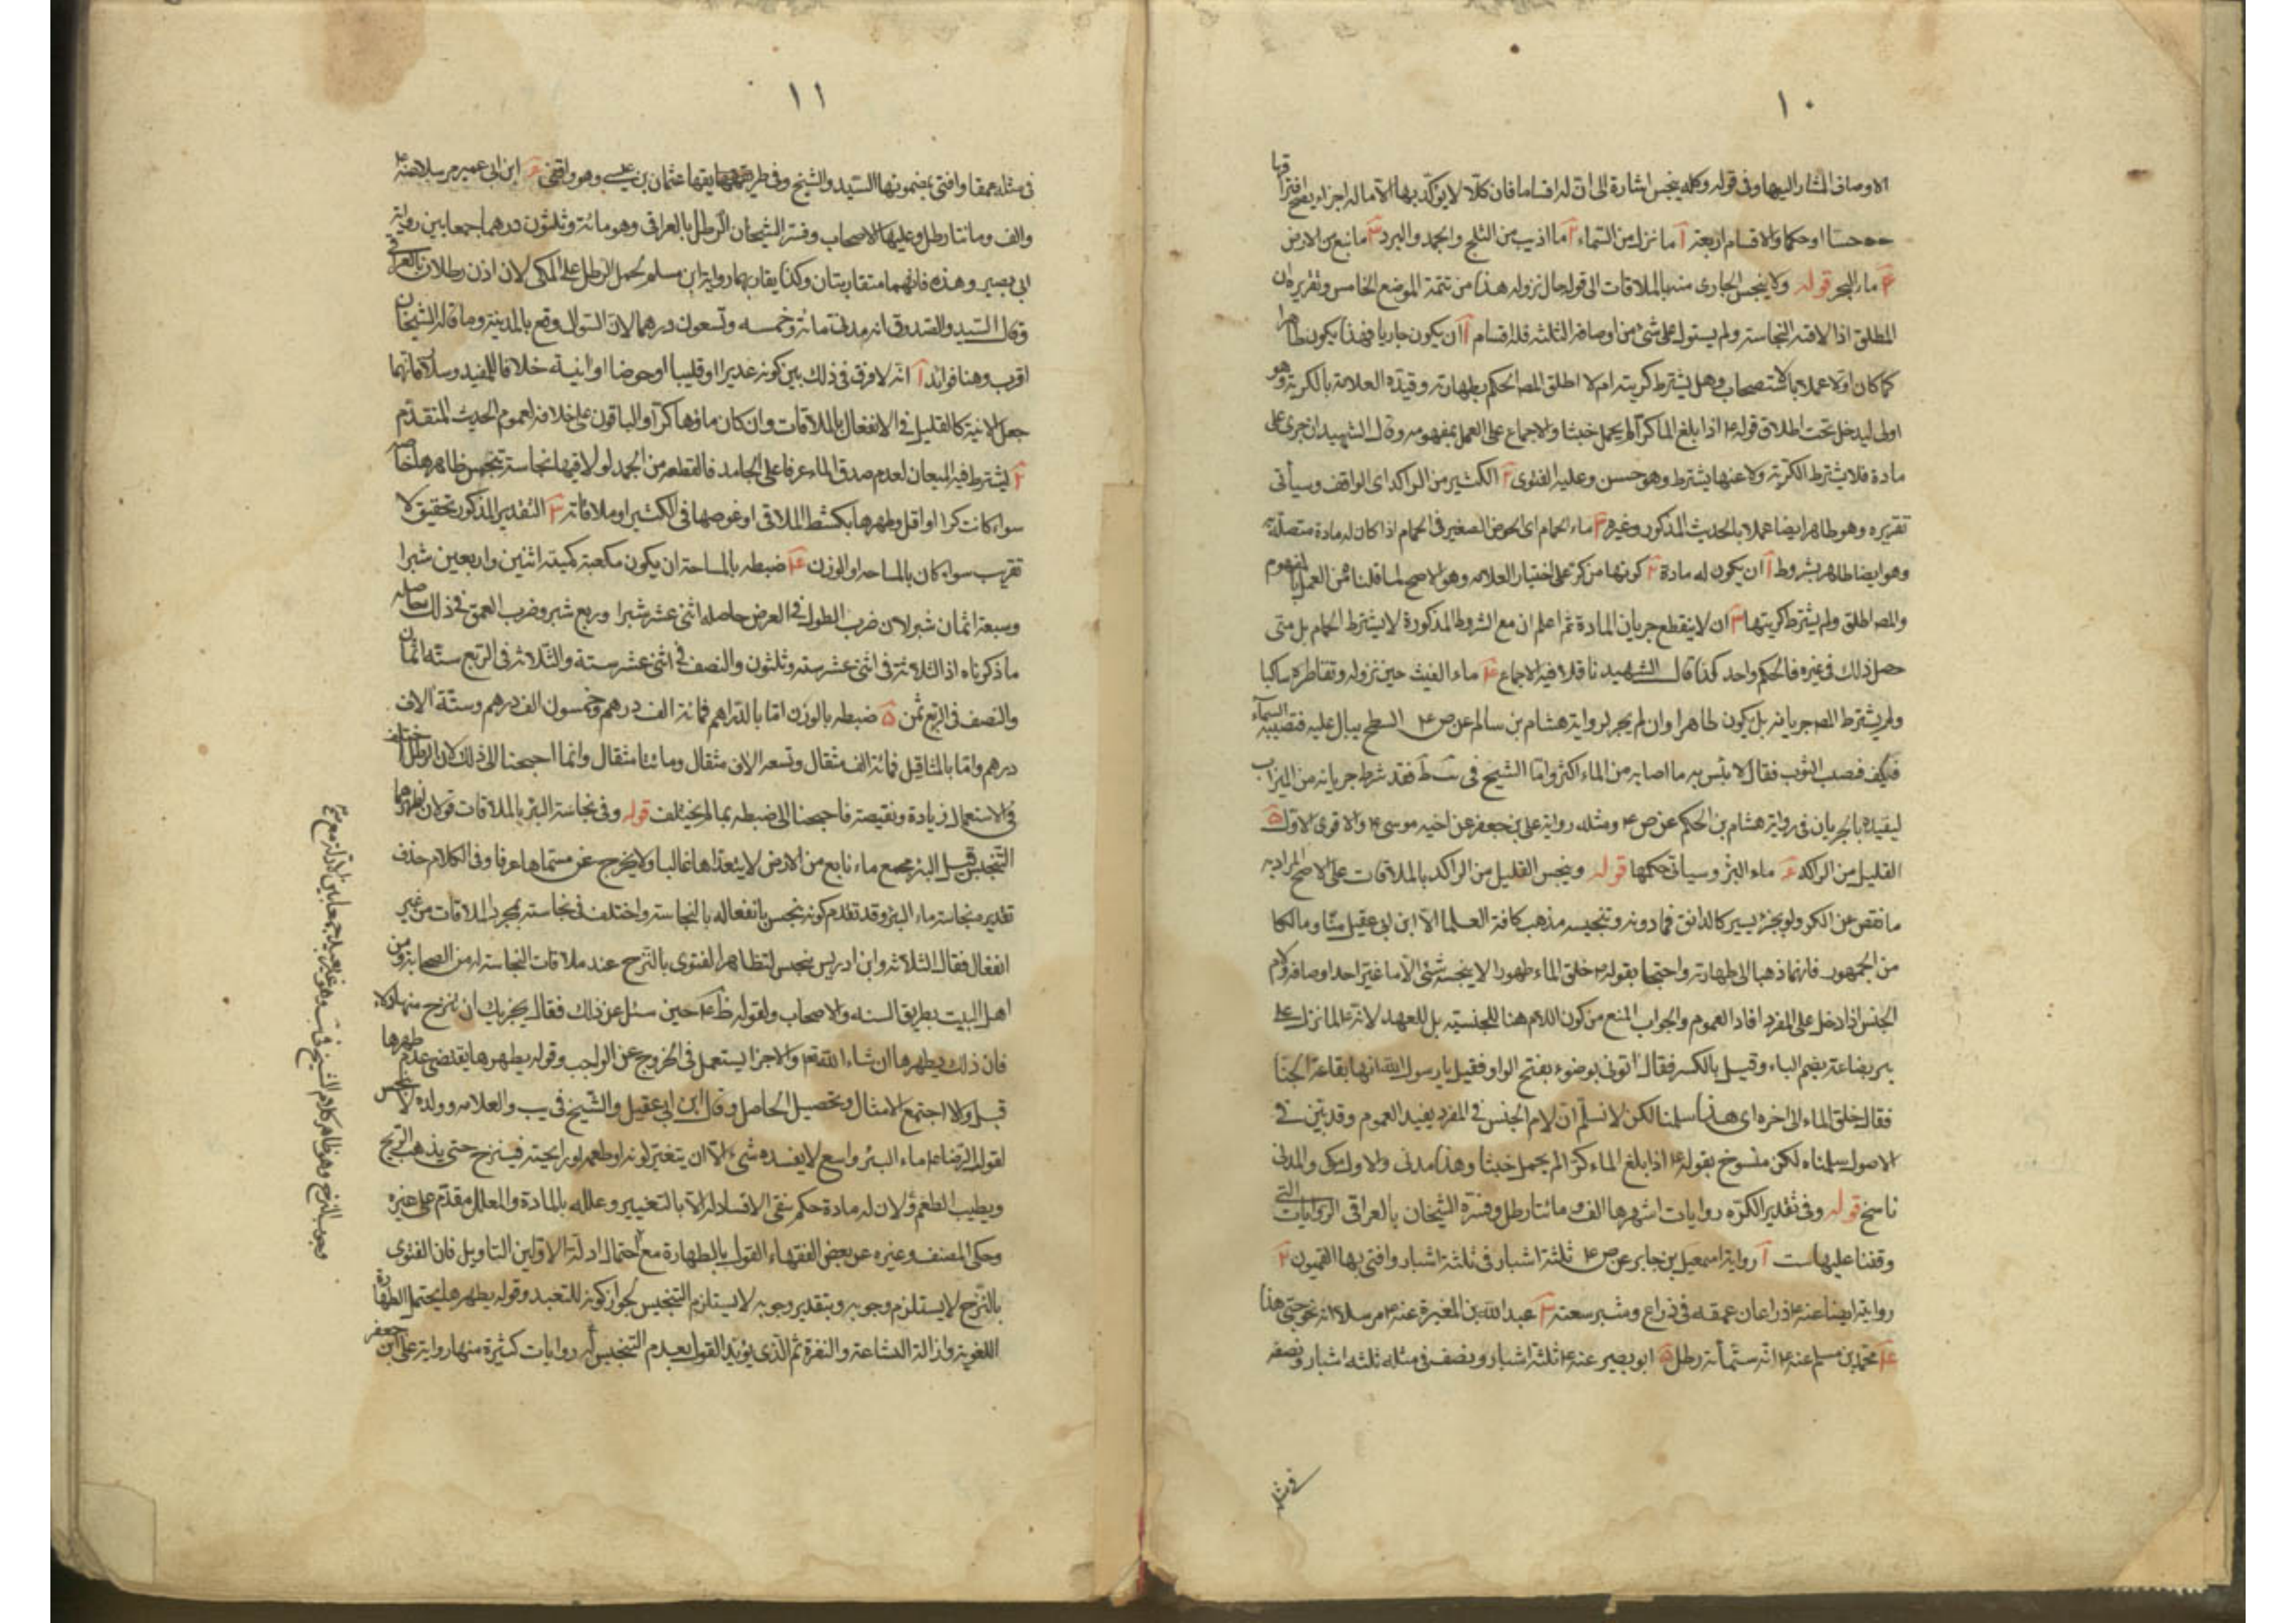 ١٠
الاوصاف المشار اليها وفى قوله وكله ينجس اشارة الى ان له اقساما فان كلا لا يؤكد بها الا ما له اجزاء يصح افتراقها
حسا او حكما والاقسام اربعة آ ما نزل من السماء ٢ ما اذيب من الثلج والجمد والبرد ٣ ما نبع من الارض
۴ ماء البحر قوله ولا ينجس الجارى منه بالملاقات الى قوله حال نزوله هذا من تتمة الموضع الخامس وتقريره ان
المطلق اذا لاقته النجاسة ولم يستول على شئ من اوصافه الثلثة فله اقسام آ ان يكون جاريا فهذا يكون طاهرا
كما كان اولا عملا بالاستصحاب وهل يشترط كريته ام لا اطلق المصـ الحكم بطهارته وقيده العلامة بالكرية وهو
اولى ليدخل تحت اطلاق قوله ع اذا بلغ الماء كرا لم يحمل خبثا والاجماع على العمل بمفهومه وقال الشهيد ان جرى على
مادة فلا يشترط الكرية ولا عنها يشترط وهو حسن وعليه الفتوى ٢ الكثير من الراكد اى الواقف وسيأتى
تقريره وهو طاهر ايضا عملا بالحديث المذكور وغيره ٣ ماء الحمام اى الحوض الصغير فى الحمام اذا كان له مادة متصلة به
وهو ايضا طاهر بشروط آ ان يكون له مادة ٢ كونها من كر على اختيار العلامه وهو الاصح لما قلناه من العمل بالمفهوم
والمصـ اطلق ولم يشترط كريتها ٣ ان لا ينقطع جريان المادة ثم اعلم ان مع الشروط المذكورة لا يشترط الحمام بل متى
حصل ذلك فى غيره فالحكم واحد كذا قال الشهيد ناقلا فيه الاجماع ۴ ماء الغيث حين نزوله وتقاطره ساكبا
ولم يشترط المصـ جريانه بل يكون طاهرا وان لم يجر لرواية هشام بن سالم عن ص ع السطح يبال عليه فتصيبه السماء
فيكف فيصيب الثوب فقال لا بأس به ما اصابه من الماء اكثر واما الشيخ فى ئب ط فقد شرط جريانه من الميزاب
ليقيده بالجريان فى رواية هشام بن الحكم عن ص ع ومثله رواية على بن جعفر عن اخيه موسى ع والاقوى الاول ۵
القليل من الراكد ۶ ماء البئر وسيأتى حكمها قوله وينجس القليل من الراكد بالملاقات على الاصح المراد به
ما نقص عن الكر ولو بجزء يسير كالدانق فما دونه وتنجيسه مذهب كافة العلماء الا ابن ابى عقيل منا ومالكا
من الجمهور فانهما ذهبا الى طهارته واحتجا بقوله ع خلق الماء طهورا لا ينجسه شئ الا ما غير احد اوصافه ولام
الجنس اذا دخل على المفرد افاد العموم والجواب المنع من كون اللام هنا للجنسية بل للعهد لانه ع لما نزل على
بئر بضاعة بضم الباء وقيل بالكسر فقال اتونى بوضوء بفتح الواو فقيل يا رسول الله انها بقاعة الجنا
فقال خلق الماء الى اخره اى هذا سلمنا لكن لا نسلم ان لام الجنس فى المفرد يفيد العموم وقد بين فى
الاصول سلمناه لكن منسوخ بقوله ع اذا بلغ الماء كرا لم يحمل خبثا وهذا مدنى والاول مكى والمدنى
ناسخ قوله وفى تقدير الكر روايات اشهرها الف ومائتا رطل وفسره الشيخان بالعراقى الروايات التى
وقفنا عليها ست آ رواية اسمعيل بن جابر عن ص ع ثلثة اشبار فى ثلثة اشبار وافتى بها القميون ٢
روايته ايضا عنه ع ذراعان عمقه فى ذراع وشبر سعته ٣ عبد الله بن المغيرة عنه ع مرسلا انه نحو حبى هذا
۴ محمد بن مسلم عنه ع انه ستمائة رطل ۵ ابو بصير عنه ع ثلثة اشبار ونصف فى مثله ثلثه اشبار ونصف
فى مثله
١١
فى مثله عمقا وافتى بمضمونها السيد والشيخ وفى طريقها عثمان بن عيسى وهو واقفى ۶ ابن ابى عمير مرسلا عنه ع
والف ومائتا رطل وعليها الاصحاب وفسر الشيخان الرطل بالعراقى وهو مائة وثلثون درهما جمعا بين رواية
ابى بصير وهذه فانهما متقاربتان وكذا يقاربهما رواية ابن مسلم لحمل الرطل على المكى لانه اذن رطلان بالعراقى
وقال السيد والصدوق انه مدنى مائة وخمسه وتسعون درهما لان السوال وقع بالمدينة وما قاله الشيخان
اقرب وهنا فوائد آ انه لا فرق فى ذلك بين كونه غديرا او قليبا او حوضا او انية خلافا للمفيد وسلار فانهما
جعلا الانية كالقليل فى الانفعال بالملاقات وان كان ماؤها كرا والباقون على خلافه لعموم الحديث المتقدم
٢ يشترط فيه الميعان لعدم صدق الماء عرفا على الجامد فالقطعة من الجمد لو لاقتها نجاسة تنجس ظاهرها خاصة
سواء كانت كرا او اقل وطهرها بكشط الملاقى او غوصها فى الكثير او ملاقاته ٣ التقدير المذكور تحقيق لا
تقريب سواء كان بالمساحه او الوزن ۴ ضبطه بالمساحة ان يكون مكعبة كميته اثنين واربعين شبرا
وسبعة اثمان شبر لان ضرب الطول فى العرض حاصله اثنى عشر شبرا وربع شبر وضرب العمق فى ذلك حاصله
ما ذكرناه اذ الثلاثة فى اثنى عشر ستة وثلثون والنصف فى اثنى عشر ستة والثلاثة فى الربع ستة اثمان
والنصف فى الربع ثمن ۵ ضبطه بالوزن اما بالدراهم فمائة الف درهم وخمسون الف درهم وستة الاف
درهم واما بالمثاقيل فمائة الف مثقال وتسعه الاف مثقال ومائتا مثقال وانما احتجنا الى ذلك لان الرطل اختلف
فى الاستعمال زيادة ونقيصة فاحتجنا الى ضبطه بما لم يختلف قوله وفى نجاسة البئر بالملاقات قولان اظهرهما
التنجيس قيل البئر مجمع ماء نابع من الارض لا يتعداها غالبا ولا يخرج عن مسماها عرفا وفى الكلام حذف
تقديره نجاسة ماء البئر وقد تقدم كونه ينجس بانفعاله بالنجاسة واختلف فى نجاسته بمجرد الملاقات من غير
انفعال فقال الثلاثة وابن ادريس ينجس لتظاهر الفتوى بالنزح عند ملاقات النجاسة له من الصحابة ومن
اهل البيت بطريق السنه والاصحاب ولقوله ظ ع حين سئل عن ذلك فقال يجزيك ان ينزح منها دلاء
فان ذلك يطهرها ان شاء الله تع والاجزا يستعمل فى الخروج عن الواجب وقوله يطهرها يقتضى عدم طهرها
قبل والا اجتمع الامثال وتحصيل الحاصل وقال ابن ابى عقيل والشيخ فى يب والعلامه وولده لا ينجس
لقول الرضا ع ماء البئر واسع لا يفسده شئ الا ان يتغير لونه او طعمه او رايحته فينزح حتى يذهب الريح
ويطيب الطعم ولان له مادة حكم بنفى الافساد له الا بالتغيير وعلله بالمادة والمعلل مقدم على غيره
وحكى المصنف وغيره عن بعض الفقهاء القول بالطهارة مع احتمال ادلة الاولين التاويل فان الفتوى
بالنزح لا يستلزم وجوبه وبتقدير وجوبه لا يستلزم التنجيس لجواز كونه للتعبد وقوله يطهرها يحتمل الطهارة
اللغوية وازالة البشاعة والنفرة ثم الذى يؤيد القول بعدم التنجيس له روايات كثيرة منها رواية على بن جعفر
وجوب النزح وهو ظاهر كلام الشيخ فى يب وهو غير بعيد جمعا بين الادلة